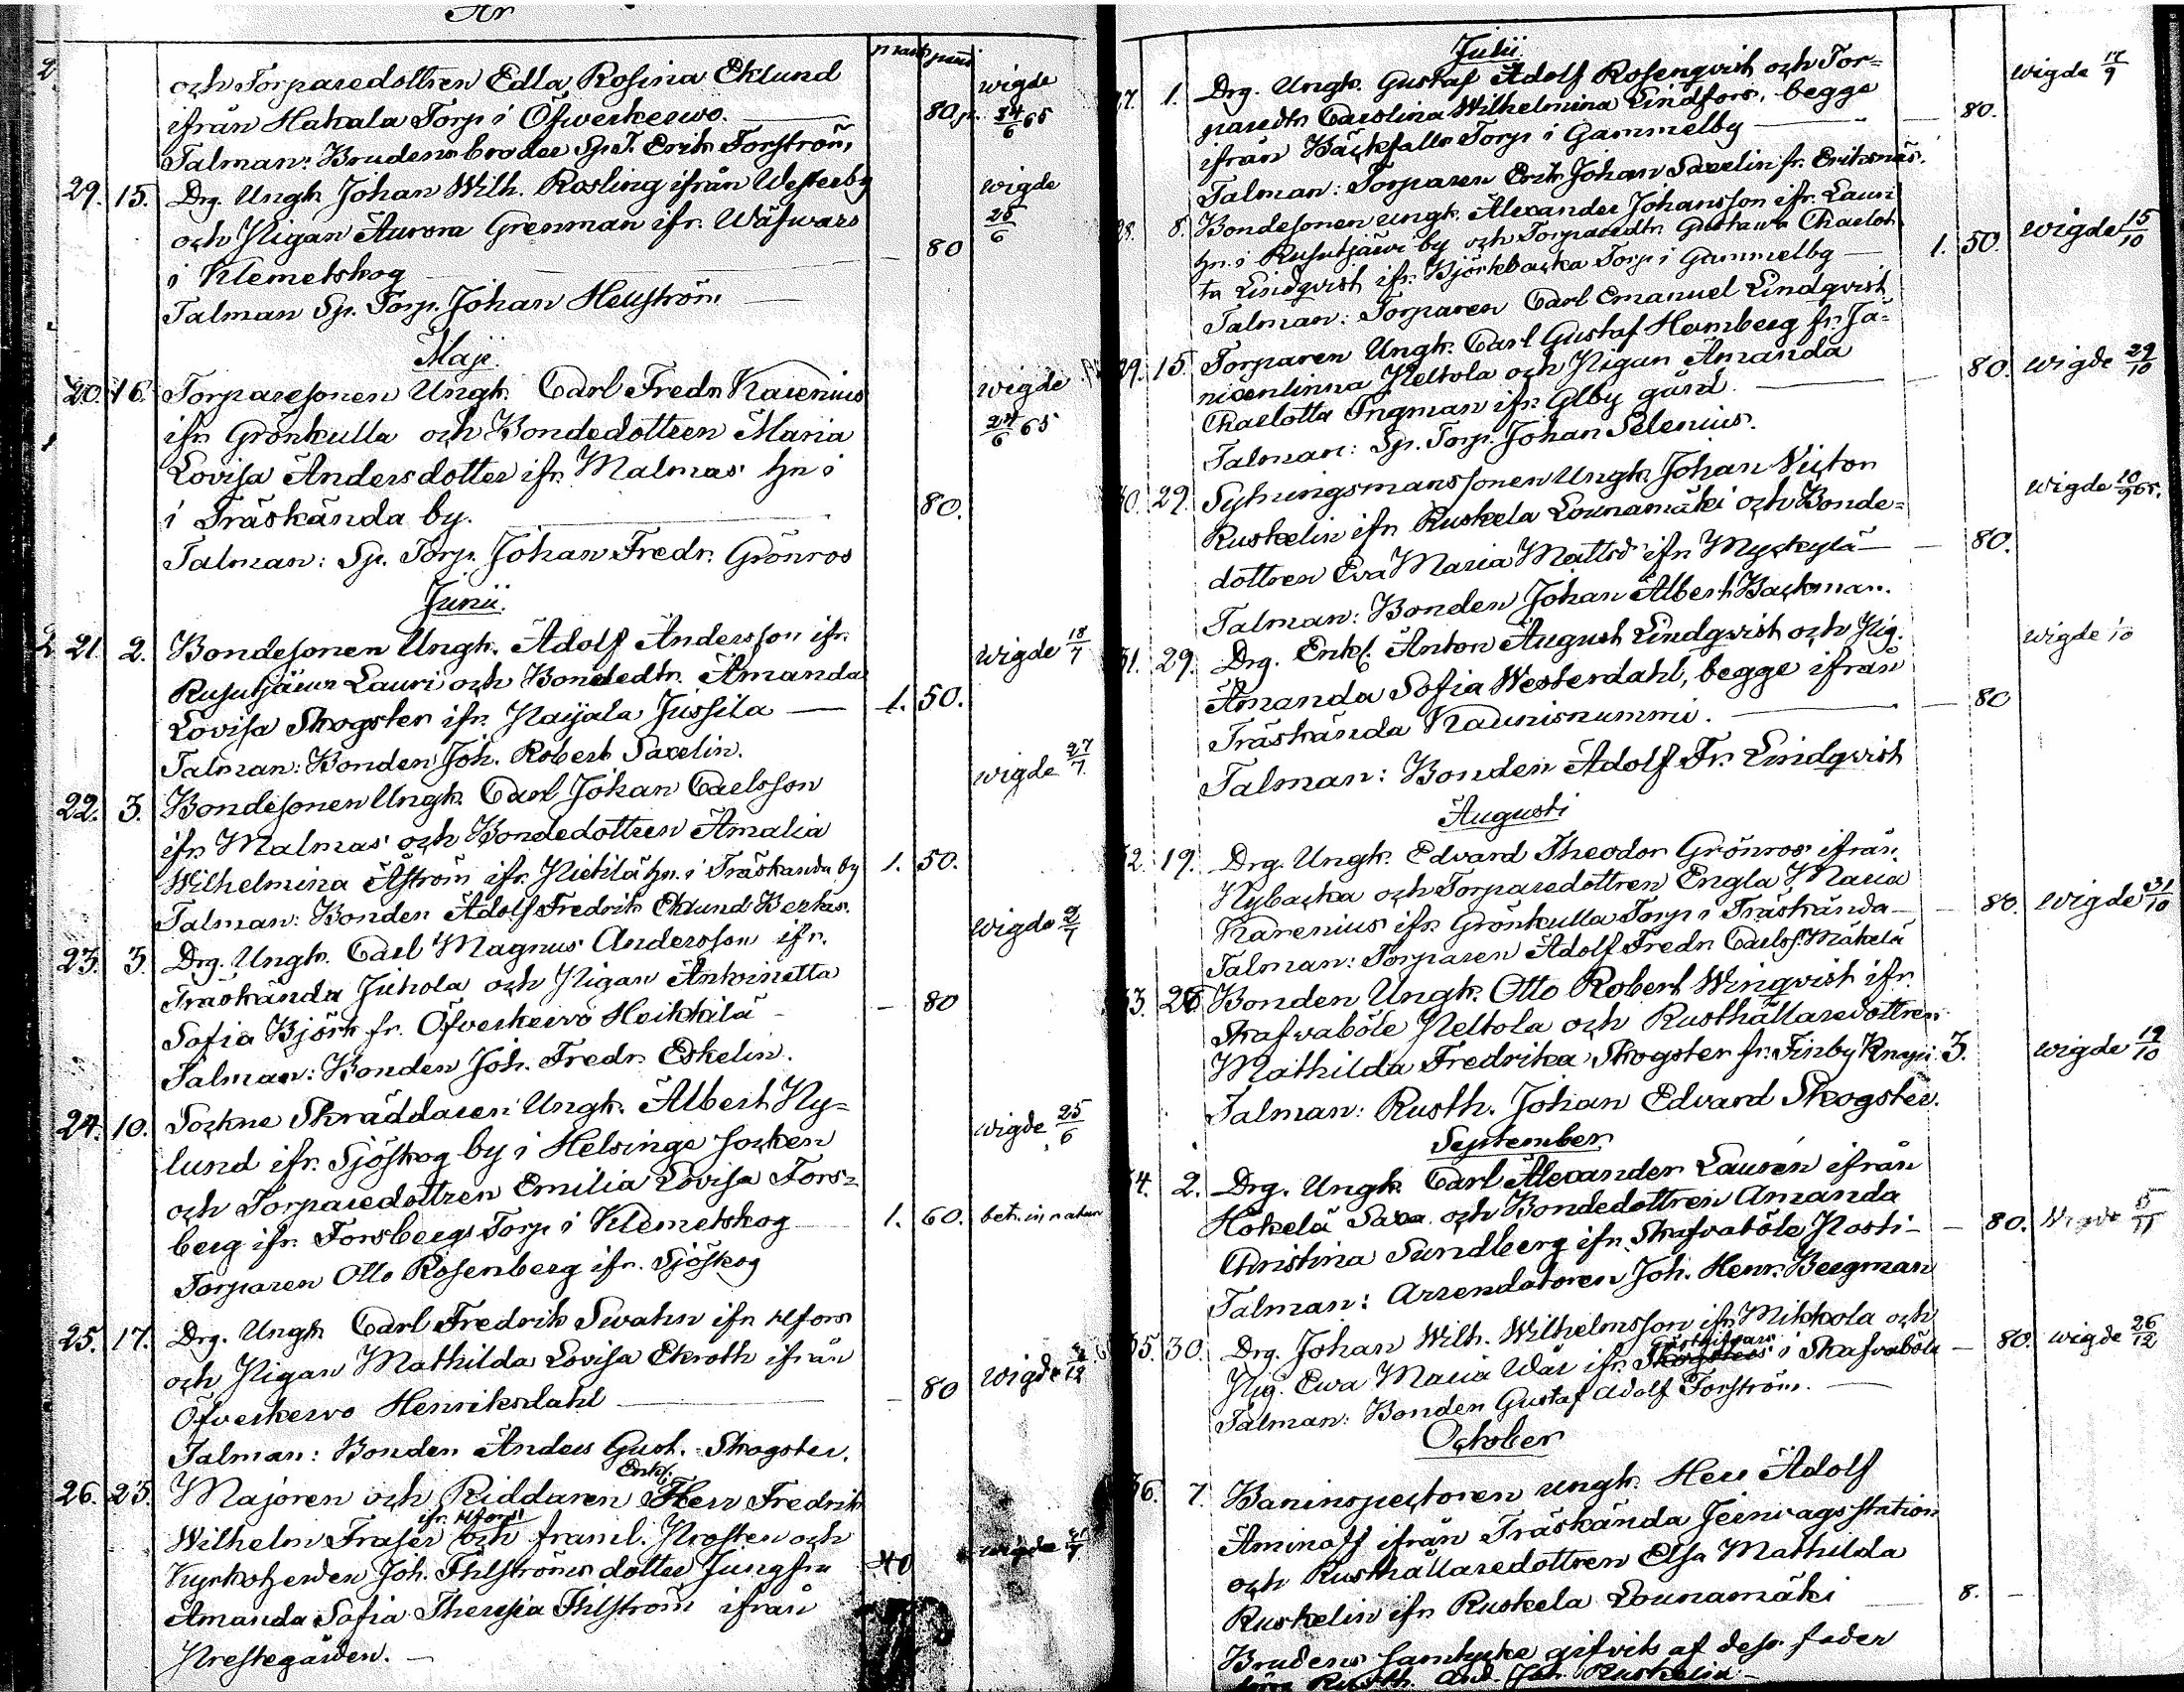 År
mark penni
och Torparedottren Edla Rosina Eklund
ifrån Hakala Torp i Öfverkervo. — 80 p. wigde 24/6 65
Talman: Brudens broder Sp. T. Erik Forström
29. 15. Drg. Ungk. Johan Wilh. Rosling ifrån Westerby wigde 25/6
och Pigan Aurora Grenman ifr. Wäfwars
i Klemetskog — 80
Talman Sp. Torp. Johan Hellström —
Maji
20. 16. Torparesonen Ungk. Carl Fredr. Karenius wigde 24/6 65
ifr. Grönkulla och Bondedottren Maria
Lovisa Andersdotter ifr. Malmas hn i
i Träskända by. — 80.
Talman: Sp. Torp. Johan Fredr. Grönros
Junii.
21. 2. Bondesonen Ungk. Adolf Andersson ifr. wigde 18/7
Rusutjärvi Lauri och Bondedtr. Amanda
Lovisa Skogster ifr. Paijala Jussila — 1. 50.
Talman: Bonden Joh. Robert Saxelin.
22. 3. Bondesonen Ungk. Carl Johan Carlsson wigde 27/7
ifr. Malmas och Bondedottren Amalia
Wilhelmina Åström ifr. Pietilä hn. i Träskända by 1. 50.
Talman: Bonden Adolf Fredrik Eklund Bertas.
23. 3. Drg. Ungk. Carl Magnus Andersson ifr. wigde 2/7
Träskända Juhola och Pigan Antoinetta
Sofia Björk fr. Öfverkervo Heikkilä — 80
Talman: Bonden Joh. Fredr. Eskelin.
24. 10. Sockne Skräddaren Ungk. Albert Ny= wigde 25/6
lund ifr. Sjöskog by i Helsinge socken
och Torparedottren Emilia Lovisa Fors=
berg ifr. Forsbergs Torp i Klemetskog 1. 60. bet. in natura
Torparen Otto Rosenberg ifr. Sjöskog
25. 17. Drg. Ungk. Carl Fredrik Swahn ifr. Hfors
och Pigan Mathilda Lovisa Ekroth ifrån wigde 12
Öfverkervo Henriksdahl — 80
Talman: Bonden Anders Gust. Skogster.
Enkl.
26. 23. Majoren och Riddaren Herr Fredrik
ifr. Hfors
Wilhelm Fraser och framl. Prosten och wigde
Kyrkoherden Joh. Fihlströms dotter Jungfru 40
Amanda Sofia Theresia Fihlström ifrån
Prestegården. —
Julii.
27. 1. Drg. Ungk. Gustaf Adolf Rosenqvist och Tor= wigde 17/9
paredtr. Carolina Wilhelmina Lindfors, begge
ifrån Bäckfalls Torp i Gammelby — 80.
Talman: Torparen Erik Johan Saxelin fr. Eriksnäs.
28. 8. Bondesonen ungk. Alexander Johansson ifr. Lauri
hn. i Rusutjärvi by och Torparedtr. Gustawa Charlot 1. 50. wigde 15/10
ta Lindqvist ifr. Björkbacka Torp i Gammelby —
Talman: Torparen Carl Emanuel Lindqvist
29. 15. Torparen Ungk. Carl Gustaf Hemberg fr. Jä=
nixenlinna Peltola och Pigan Amanda 80. wigde 29/10
Charlotta Ingman ifr. Glby gård. —
Talman: Sp. Torp. Johan Selenius.
30. 29. Sexhningsmanssonen Ungk. Johan Victor wigde 10/9 65.
Ruskelin ifr. Ruskela Lounamäki och Bonde=
dottren Eva Maria Mattsd. ifr. Myckylä — 80.
Talman: Bonden Johan Albert Backman.
31. 29. Drg. Enkl. Anton August Lindqvist och Pig. wigde 10
Amanda Sofia Westerdahl, begge ifrån
Träskända Kaunisnummi. — 80
Talman: Bonden Adolf Fr. Lindqvist
Augusti
32. 19. Drg. Ungk. Edvard Theodor Grönros ifrån
Nybacka och Torparedottren Engla Maria
Karenius ifr. Grönkulla Torp i Träskända — 80. wigde 31/10
Talman: Torparen Adolf Fredr. Carlss. Mäkelä
33. 26. Bonden Ungk. Otto Robert Winqvist ifr.
Skafvaböle Peltola och Rusthållaredottren
Mathilda Fredrika Skogster fr. Finby Knapi 3. wigde 19/10
Talman: Rusth. Johan Edvard Skogster.
September
34. 2. Drg. Ungk. Carl Alexander Laurén ifrån
Hökelä Saxa och Bondedottren Amanda
Christina Sundberg ifr. Skafvaböle Posti — 80. Wigde 5/11
Talman: Arrendatoren Joh. Henr. Bergman
35. 30. Drg. Johan Wilh. Wilhelmsson ifr. Mikkola och
Pig. Ewa Maria Wäs ifr. Skogsters i Skafvaböle — 80. wigde 26/12
Talman: Bonden Gustaf Adolf Forström. —
October
36. 7. Baninspectoren ungk. Herr Adolf
Aminoff ifrån Träskända Jernvägsstation
och Rusthållaredottren Elsa Mathilda
Ruskelin ifr. Ruskela Lounamäki 8. —
Brudens samtycke gifvits af dess fader
Rusth. And. Joh. Ruskelin —